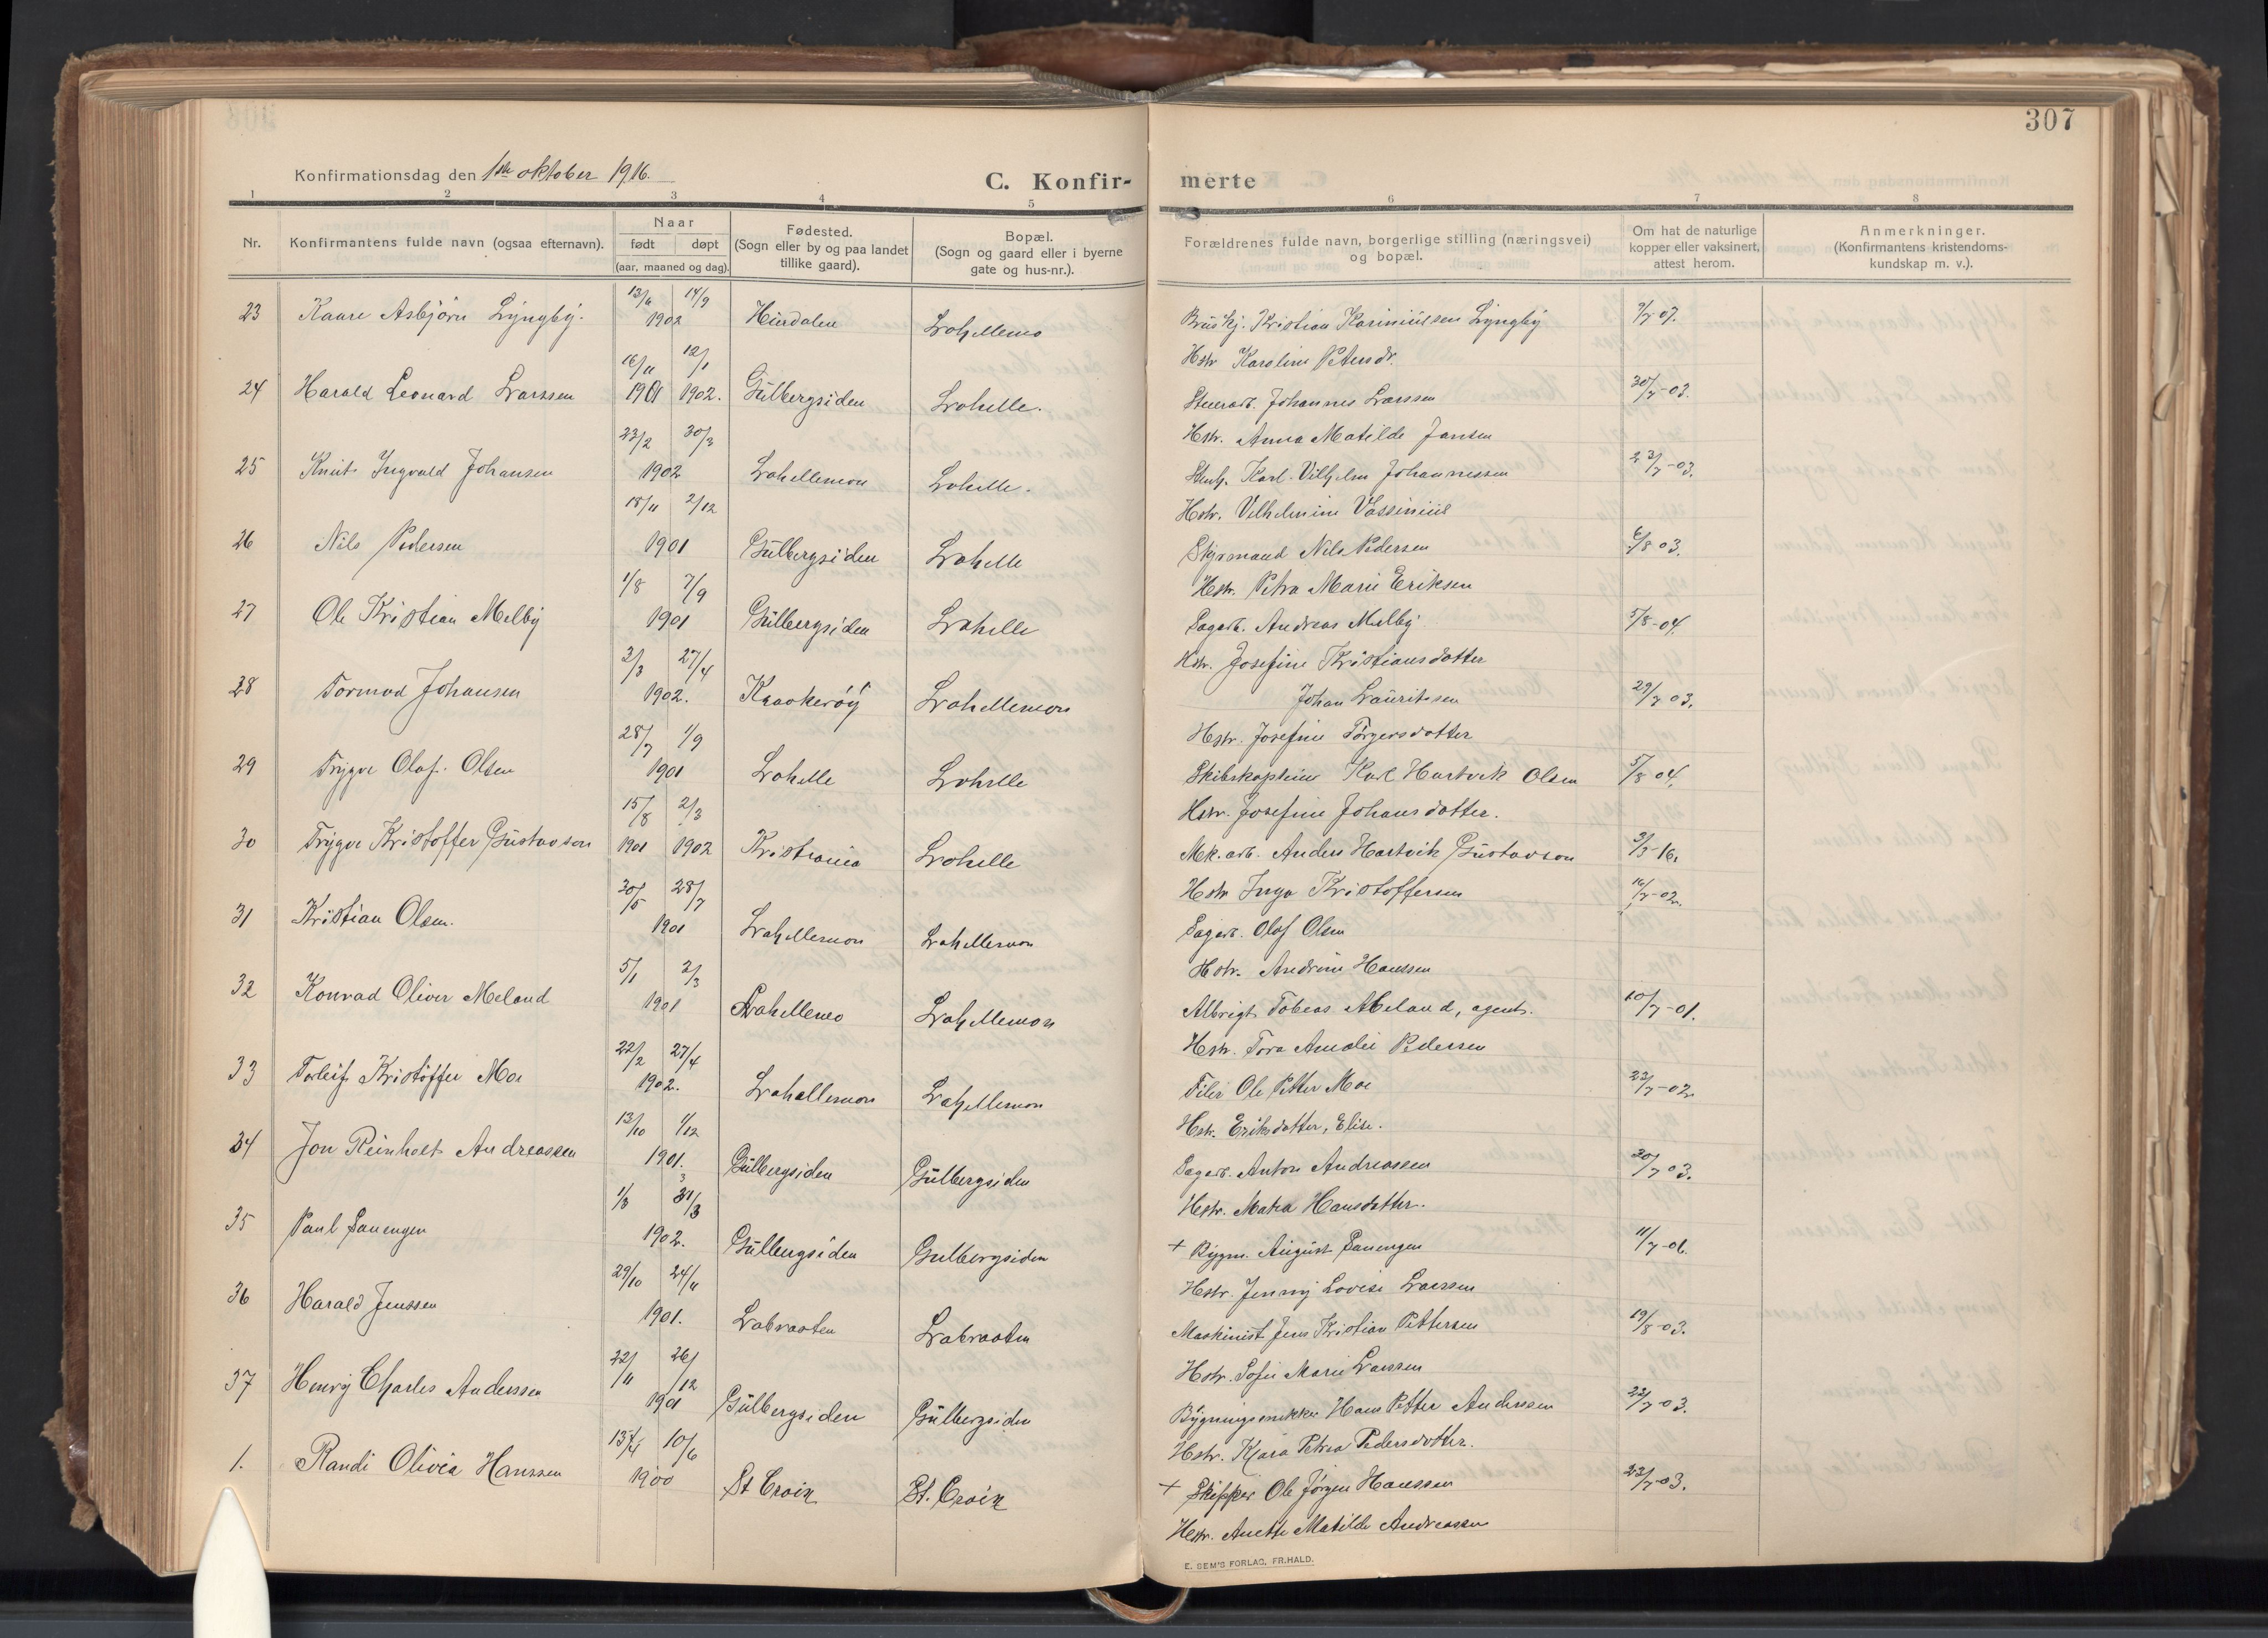 307
Konfirmationsdag den 1ste oktober 1916.
C. Konfir- merte
1 2 3 4 5 6 7 8
Nr. Konfirmantens fulde navn (ogsaa efternavn). Naar født døpt (aar, maaned og dag). Fødested. (Sogn eller by og paa landet tillike gaard). Bopæl. (Sogn og gaard eller i byerne gate og hus-nr.). Forældrenes fulde navn, borgerlige stilling (næringsvei) og bopæl. Om hat de naturlige kopper eller vaksinert, attest herom. Anmerkninger. (Konfirmantens kristendoms- kundskap m. v.).
23 Kaare Asbjørn Lyngby. 14/9 1902 Lahellemo Kristian Lyngby 7/7 07.
Hstr. Karoline Petersdr.
24 Harald Leonard Larssen 16/11 1901 12/1 1902. Gulbergsiden Lahelle. Johannes Larssen 30/7-03.
Hstr. Anna Matilde Jansen
25 Knut Ingvald Johansen 23/2 30/3 1902 Lahellemon Lahelle. Karl Vilhelm Johannessen 23/7-03.
Hstr. Vilhelmine
26 Nils Pedersen 18/11 2/12 1901 Gulbergsiden Lahelle Styrmand Nils Pedersen 6/8 03.
Hstr. Petra Marie Eriksen
27 Ole Kristian Melby 1/8 7/9 1901 Gulbergsiden Lahelle Sagarb. Andreas Melby 5/8-04.
Hstr. Josefine Kristiansdatter
28 Tormod Johansen 2/3 27/4 1902. Kraakerøy Lahellemon Johan Lauritsen 29/7 03.
Hstr. Josefine Torgersdatter
29 Trygve Olaf Olsen 28/7 1/9 1901 Lahelle Lahelle Skibskaptein Karl Hartvik Olsen 5/8 04.
Hstr. Josefine Johansdatter.
30 Trygve Kristoffer Gustavson 15/8 1901 2/3 1902 Kristiania Lahelle Mek. arb. Anders Hartvik Gustavson 3/3-16.
Hstr Inga Kristoffersen 16/7-02.
31 Kristian Olsen. 30/5 28/7 1901 Lahellemon Lahellemon Sagarb. Olaf Olsen
Hstr. Andrine Hanssen
32 Konrad Oliver Meland 5/1 2/3 1901 Lahellemo Lahellemon Albrigt Tobias Meland, agent. 10/7-01.
Hstr. Tora Amalie Pedersen
33 Torleif Kristoffer Moe 22/2 27/4 1902. Lahellemon Lahellemon Filer Ole Petter Moe 22/7-02
Hstr. Eriksdatter, Elise.
34 Jon Reinholt Andreassen 13/10 1/12 1901. Gulbergsiden Gulbergsiden Sagarb. Anton Andreassen 20/7 03.
Hstr. Matea Hansdatter.
35 Paul Sanengen 1/3 31/3 1902. Gulbergsiden Gulbergsiden + Bygm. August Sanengen 11/7-06.
Hstr. Jenny Lovise Larssen
36 Harald Jenssen 29/10 24/11 1901. Labraaten Labraaten Maskinist Jens Kristian Pettersen 19/8-03.
Hstr. Sofie Marie Larssen
37 Henry Charles Anderssen 22/11 26/12 1901 Gulbergsiden Gulbergsiden Bygningssnikker Hans Petter Anderssen 22/7 03.
Hstr. Klara Petrea Pedersdotter.
1. Randi Olivia Hanssen 13/4 10/6 1900 St Croix St. Croix + Skipper Ole Jörgen Hanssen 23/7-03.
Hstr. Anette Matilde Andreassen
E. SEM'S FORLAG, FR.HALD.